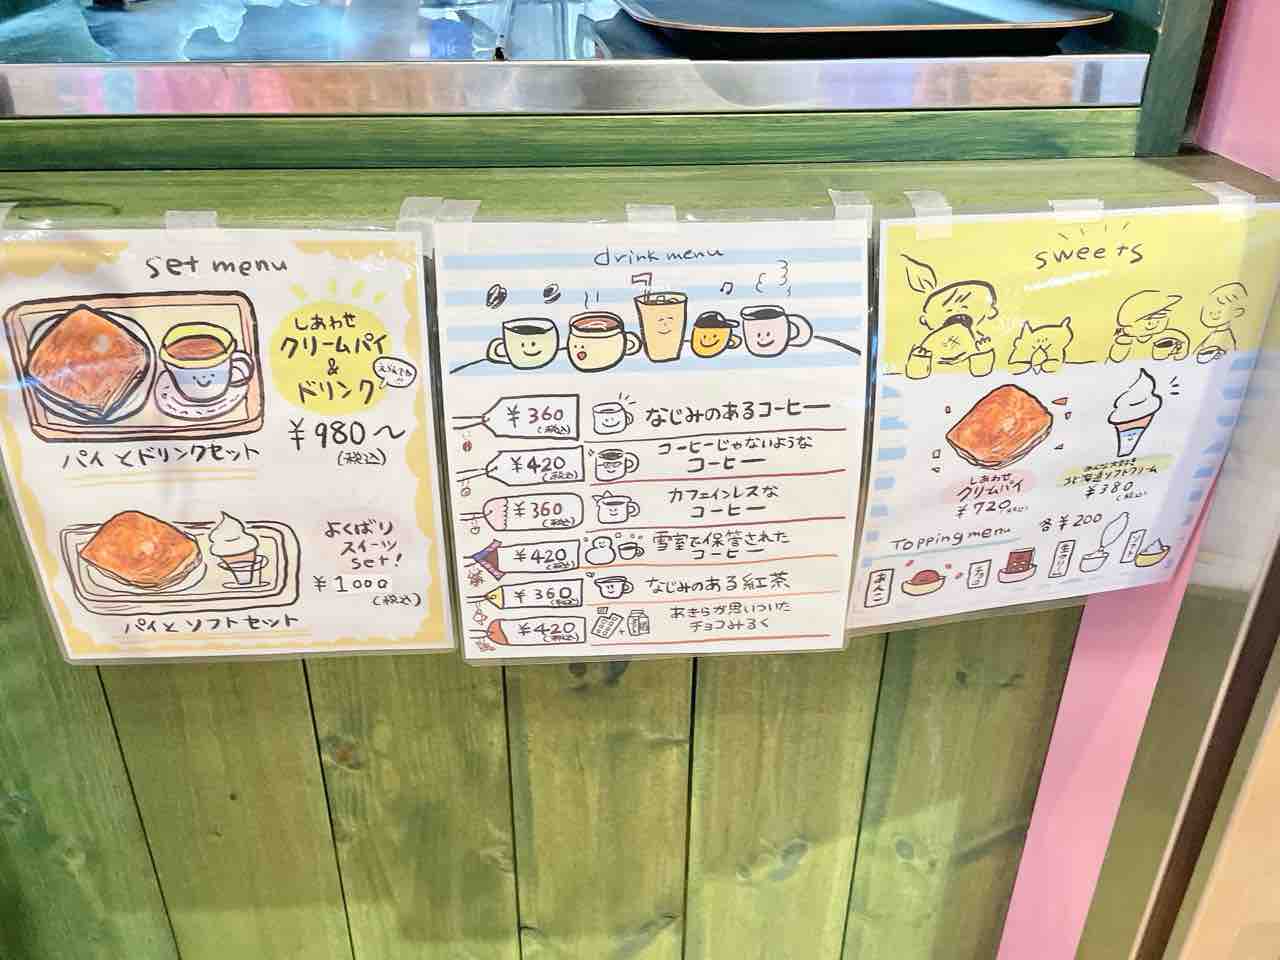 set menu
しあわせ
クリームパイ
&
ドリンク
えらべる!!
¥980〜
(税込)
パイとドリンクセット
よくばり
スイーツ
set!
¥1000
(税込)
パイとソフトセット
drink menu
¥360 (税込) なじみのあるコーヒー
¥420 (税込) コーヒーじゃないような
コーヒー
¥360 (税込) カフェインレスな
コーヒー
¥420 (税込) 雪室で保管された
コーヒー
¥360 (税込) なじみのある紅茶
¥420 (税込) あきらが思いついた
チョコみるく
sweets
しあわせ
クリームパイ
¥720 (税込)
みんな大好き
北海道ソフトクリーム
¥380
(税込)
Topping menu 各¥200
あんこ
チョコ
生クリーム
ソフト